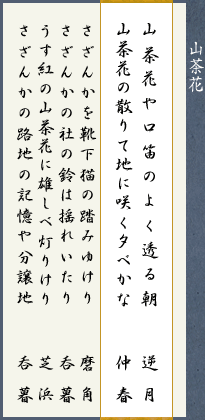 山茶花
山茶花や口笛のよく透る朝　逆月
山茶花の散りて地に咲く夕べかな　仲春
さざんかを靴下猫の踏みゆけり　磨角
さざんかの社の鈴は揺れいたり　呑暮
うす紅の山茶花に雄しべ灯りけり　芝浜
さざんかの路地の記憶や分譲地　呑暮